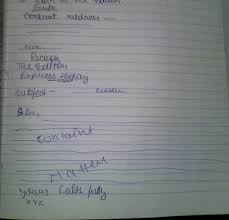 to the Editor
Contact address -
Date
Receiver
The Editor
Express today
Subject -
Sir,
Content
Matter
Yours faithfully
XYZ